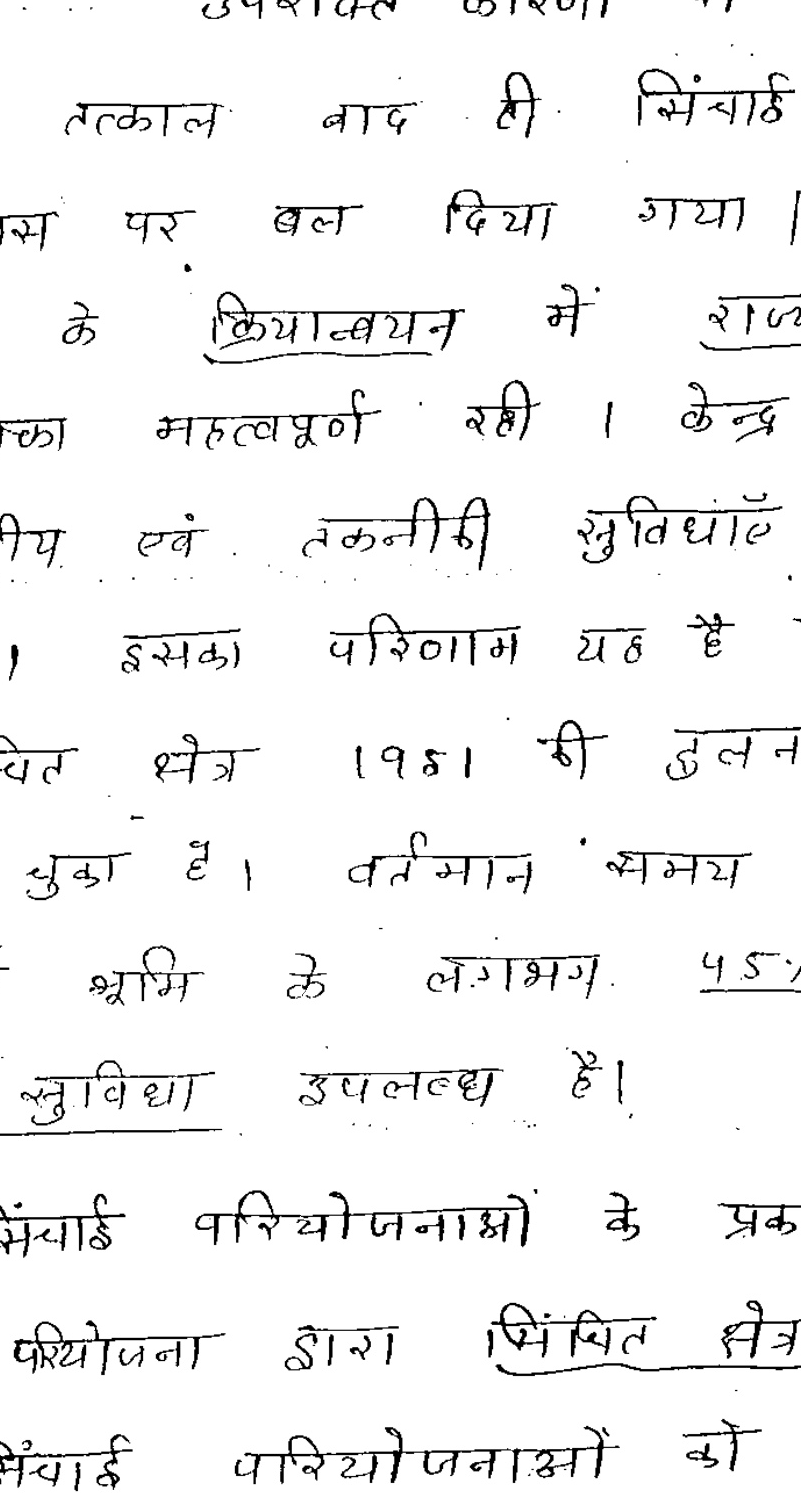 तत्काल बाद ही सिंचाई
पर बल दिया गया।
के क्रियान्वयन में राज्य
महत्वपूर्ण रही । केन्द्र
एवं तकनीकी सुविधाएँ
। इसका परिणाम यह है
क्षेत्र 1951 की तुलन
चुका है। वर्तमान समय
भूमि के लगभग 45%
सुविधा उपलब्ध है।
सिंचाई परियोजनाओं के प्रक
परियोजना द्वारा सिंचित क्षेत्र
सिंचाई परियोजनाओं को